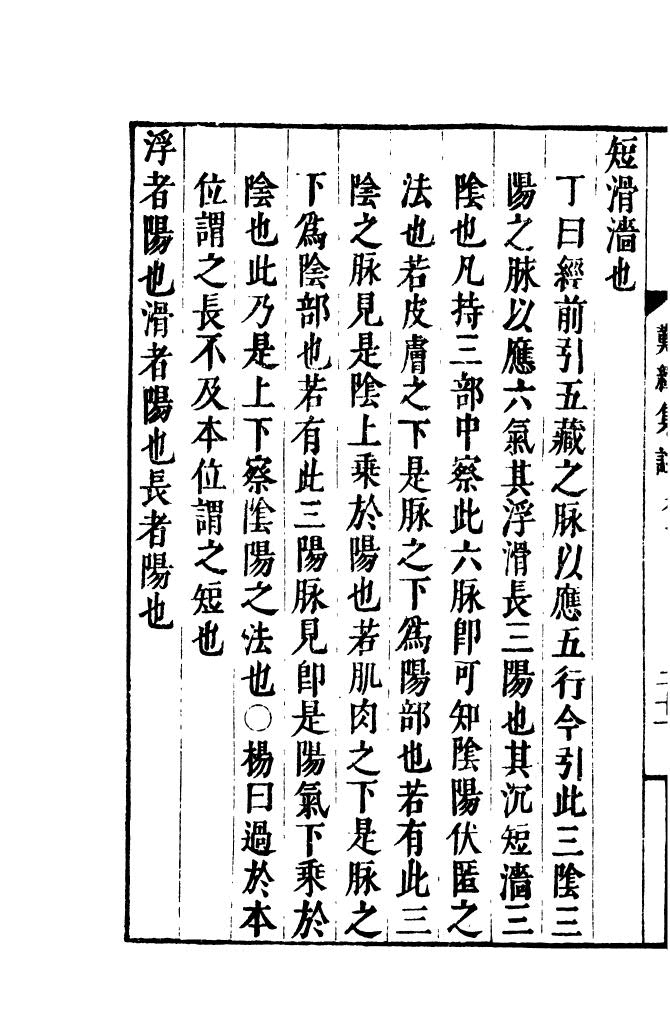 短滑濇也
丁曰經前引五藏之脉以應五行今引此三陰三
陽之脉以應六氣其浮滑長三陽也其沉短濇三
陰也凡持三部中察此六脉卽可知陰陽伏匿之
法也若皮膚之下是脉之下爲陽部也若有此三
陰之脉見是陰上乘於陽也若肌肉之下是脉之
下爲陰部也若有此三陽脉見卽是陽氣下乘於
陰也此乃是上下察陰陽之法也○楊曰過於本
位謂之長不及本位謂之短也
浮者陽也滑者陽也長者陽也
難經集註